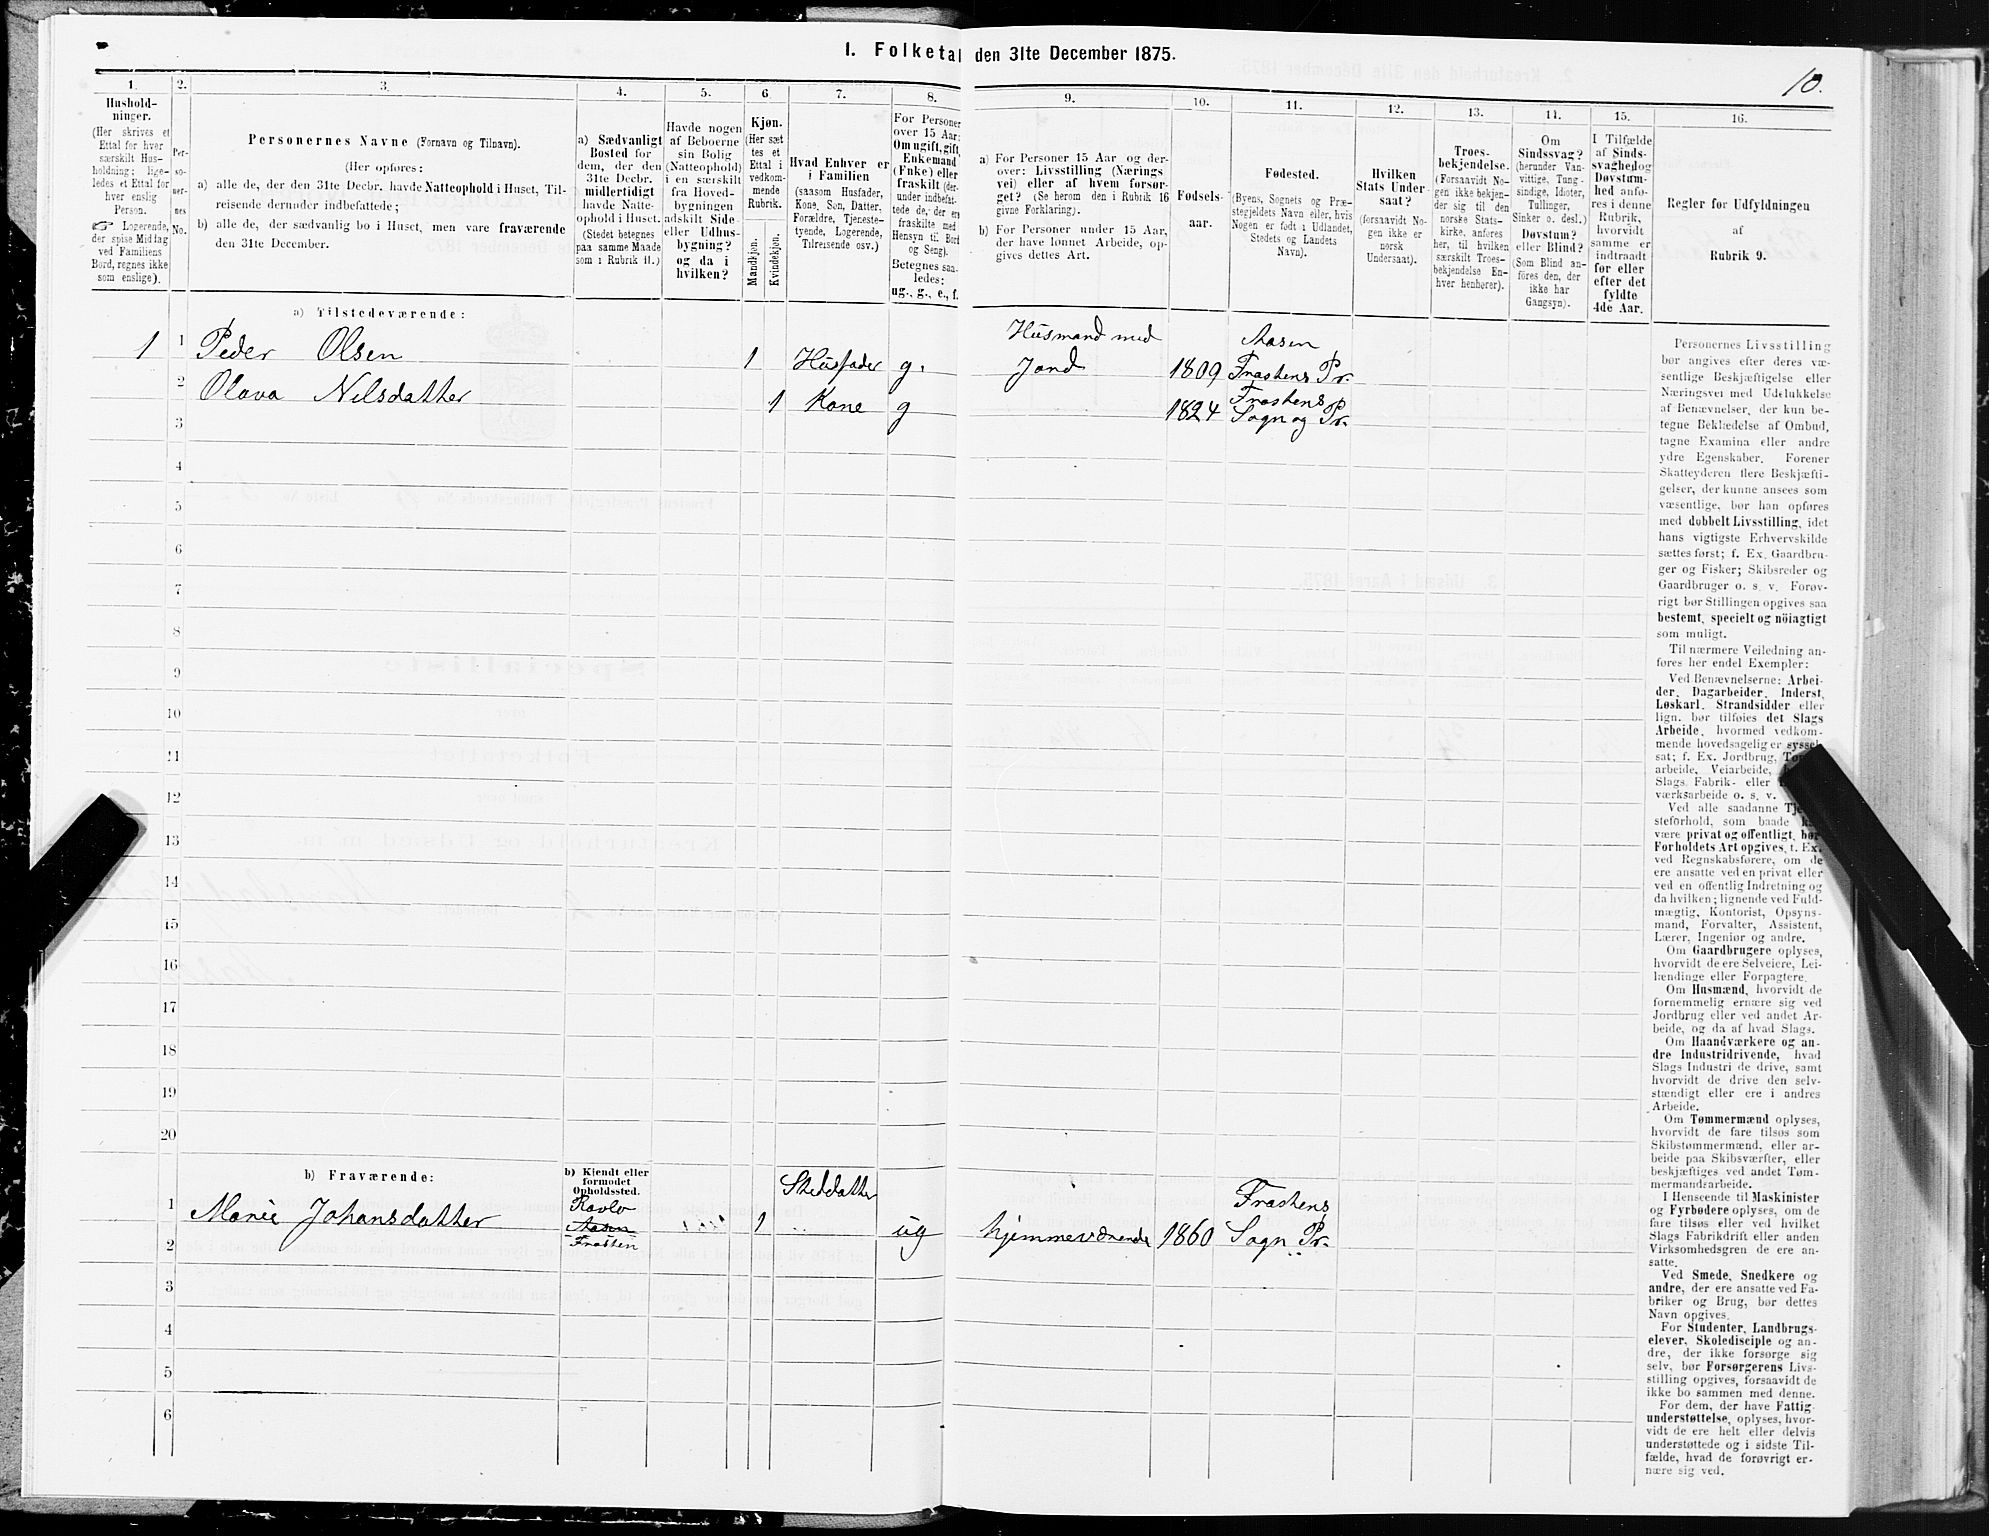 1. Folketal den 31te December 1875.
10.
1.
Hushold-
ninger.
(Her skrives et
Ettal for hver
særskilt Hus-
holdning; lige-
ledes et Ettal for
hver enslig
Person.
☞ Logerende,
der spise Middag
ved Familiens
Bord, regnes ikke
som enslige).
2.
Per-
so-
ner-
nes
No.
3.
Personernes Navne (Fornavn og Tilnavn).
(Her opføres:
a) alle de, der den 31te Decbr. havde Natteophold i Huset, Til-
reisende derunder indbefattede;
b) alle de, der sædvanlig bo i Huset, men vare fraværende
den 31te December.
4.
a) Sædvanligt
Bosted for
dem, der den
31te Decbr.
midlertidigt
havde Natte-
ophold i Huset.
(Stedet betegnes
paa samme Maade
som i Rubrik 11.)
5.
Havde nogen
af Beboerne
sin Bolig
(Natteophold)
i en særskilt
fra Hoved-
bygningen
adskilt Side-
eller Udhus-
bygning?
og da i
hvilken?
6.
Kjøn.
(Her sæt
tes et
Ettal i
vedkom-
mende
Rubrik.
Mandkjøn.
Kvindekjøn.
7.
Hvad Enhver er
i Familien
(saasom Husfader,
Kone, Søn, Datter,
Forældre, Tjeneste-
tyende, Logerende,
Tilreisende osv.)
8.
For Personer
over 15 Aar:
Om ugift, gift,
Enkemand
(Enke) eller
fraskilt (der-
under indbefat-
tede de, der ere
fraskilte med
Hensyn til Bord
og Seng).
Betegnes saa-
ledes:
ug., g., e., f.
9.
a) For Personer 15 Aar og der-
over: Livsstilling (Nærings
vei) eller af hvem forsør-
get? (Se herom den i Rubrik 16
givne Forklaring).
b) For Personer under 15 Aar,
der have lønnet Arbeide, op-
gives dettes Art.
10.
Fødsels-
aar.
11.
Fødested.
(Byens, Sognets og Præ-
stegjeldets Navn eller, hvis
Nogen er født i Udlandet,
Stedets og Landets
Navn).
12.
Hvilken
Stats Under-
saat?
(forsaavidt No-
gen ikke er
norsk
Undersaat).
13.
Troes-
bekjendelse.
(Forsaavidt No-
gen ikke bekjen-
der sig til den
norske Stats-
kirke, anføres
her, til hvilken
særskilt Troes-
bekjendelse En-
hver henhører).
14.
Om
Sindssvag?
(herunder Van-
vittige, Tung-
sindige, Idioter,
Tullinger,
Sinker o. desl.)
Døvstum?
eller Blind?
(Som Blind an-
føres den, der
ikke har
Gangsyn).
15.
I Tilfælde
af Sinds-
svaghed og
Døvstum-
hed anfø-
res i denne
Rubrik,
hvorvidt
samme er
indtraadt
før eller
efter det
fyldte
4de Aar.
16.
Regler før Udfyldningen
af
Rubrik 9.
a) Tilstedeværende:
1 1 Peder Olsen 1 Husfader g. Husmand med Jord 1809 Aasen Frostens Pr.
2 Olava Nilsdatter 1 Kone g 1824 Frostens Sogn og Pr.
3
4
5
6
7
8
9
10
11
12
13
14
15
16
17
18
19
20
b) Fraværende:
b) Kjendt eller
formodet
Opholdssted.
1 Marie Johansdatter Aasen Frosten 1 Steddatter ug hjemmeværende 1860 Frostens Sogn Pr.
2
3
4
5
6
Personernes Livsstilling
bør angives efter deres væ-
sentlige Beskjæftigelse eller
Næringsvei med Udelukkelse
af Benævnelser, der kun be-
tegne Beklædelse af Ombud,
tagne Examina eller andre
ydre Egenskaber. Forener
Skatteyderen flere Beskjæfti-
gelser, der kunne ansees som
væsentlige, bør han opføres
med dobbelt Livsstilling, idet
hans vigtigste Erhvervskilde
sættes først; f. Ex. Gaardbru-
ger og Fisker; Skibsreder og
Gaardbruger o. s. v. Forøv-
rigt bør Stillingen opgives saa
bestemt, specielt og nöiagtigt
som muligt.
Til nærmere Veiledning an-
føres her endel Exempler:
Ved Benævnelserne: Arbei-
der, Dagarbeider, Inderst,
Løskarl, Strandsidder eller
lign. bør tilføies det Slags
Arbeide, hvormed vedkom-
mende hovedsagelig er syssel-
sat; f. Ex. Jordbrug,
arbeide, Veiarbeide,
Slags Fabrik- eller
værksarbeide o. s. v.
Ved alle saadanne
steforhold, som baade
være privat og offentligt, bør
Forholdets Art opgives, f. Ex.
ved Regnskabsførere, om de
ere ansatte ved en privat eller
ved en offentlig Indretning og
da hvilken; lignende ved Fuld-
mægtig, Kontorist, Opsyns-
mand, Forvalter, Assistent,
Lærer, Ingeniør og andre.
Om Gaardbrugere oplyses,
hvorvidt de ere Selveiere, Lei-
lændinge eller Forpagtere.
Om Husmænd, hvorvidt de
fornemmelig ernære sig ved
Jordbrug eller ved andet Ar-
beide, og da af hvad Slags.
Om Haandværkere og an-
dre Industridrivende, hvad
Slags Industri de drive, samt
hvorvidt de drive den selv-
stændigt eller ere i andres
Arbeide.
Om Tømmermænd oplyses,
hvorvidt de fare tilsøs som
Skibstømmermænd, eller ar-
beide paa Skibsværfter, eller
beskjæftiges ved andet Tøm-
mermandsarbeide.
I Henseende til Maskinister
og Fyrbødere oplyses, om de
fare tilsøs eller ved hvilket
Slags Fabrikdrift eller anden
Virksomhedsgren de ere an-
satte.
Ved Smede, Snedkere og
andre, der ere ansatte ved Fa-
briker og Brug, bør dettes
Navn opgives.
For Studenter, Landbrugs-
elever, Skoledisciple og an-
dre, der ikke forsørge sig
selv, bør Forsørgerens Livs-
stilling opgives, forsaavidt de
ikke bo sammen med denne.
For dem, der have Fattig-
understøttelse, oplyses, hvor-
vidt de ere helt eller delvis
understøttede og i sidste Til-
fælde, hvad de forøvrigt er-
nære sig ved.